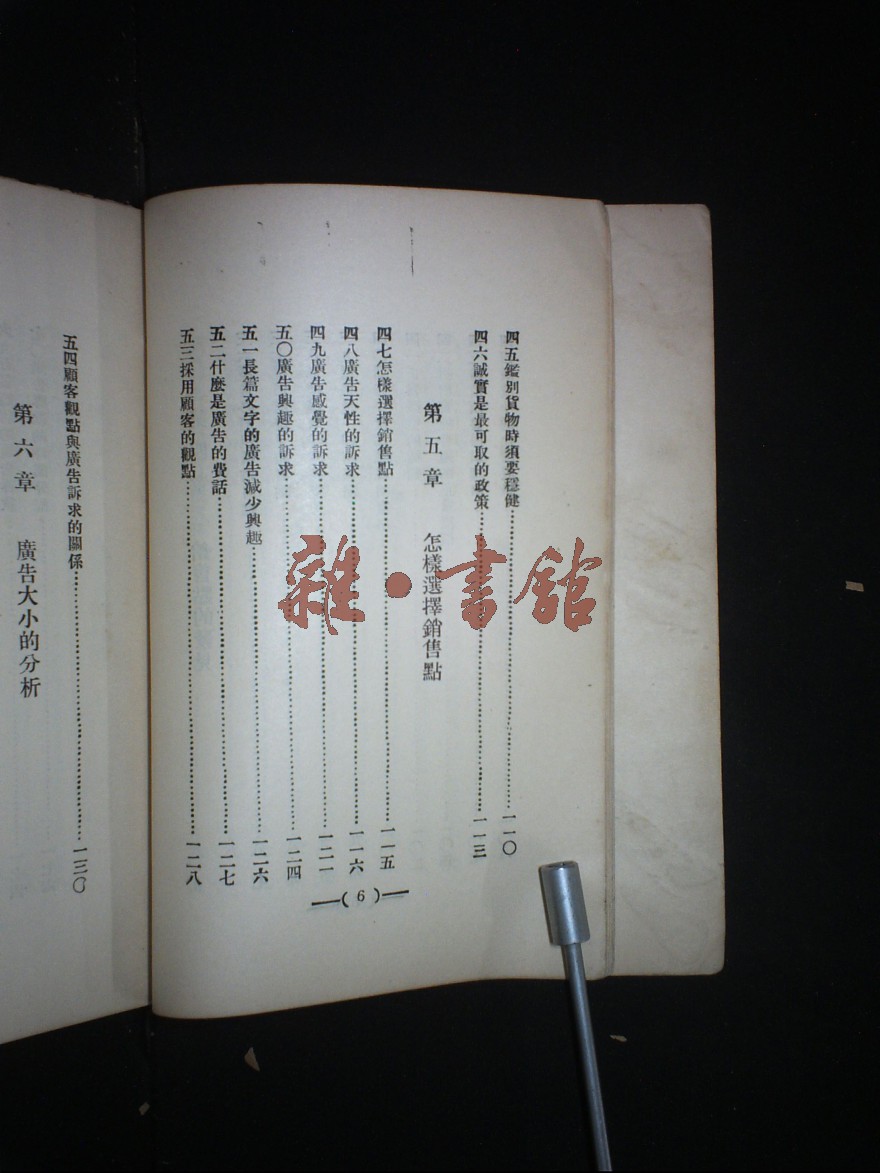 四五鑑別貨物時須要穩健……一一〇
四六誠實是最可取的政策……一一三
第五章 怎樣選擇銷售點
四七怎樣選擇銷售點……一一五
四八廣告天性的訴求……一一六
四九廣告感覺的訴求……一二一
五〇廣告興趣的訴求……一二四
五一長篇文字的廣告減少興趣……一二六
五二什麼是廣告的費話……一二七
五三採用顧客的觀點……一二八
—( 6 )—
五四顧客觀點與廣告訴求的關係……一三〇
第六章 廣告大小的分析
雜·書館